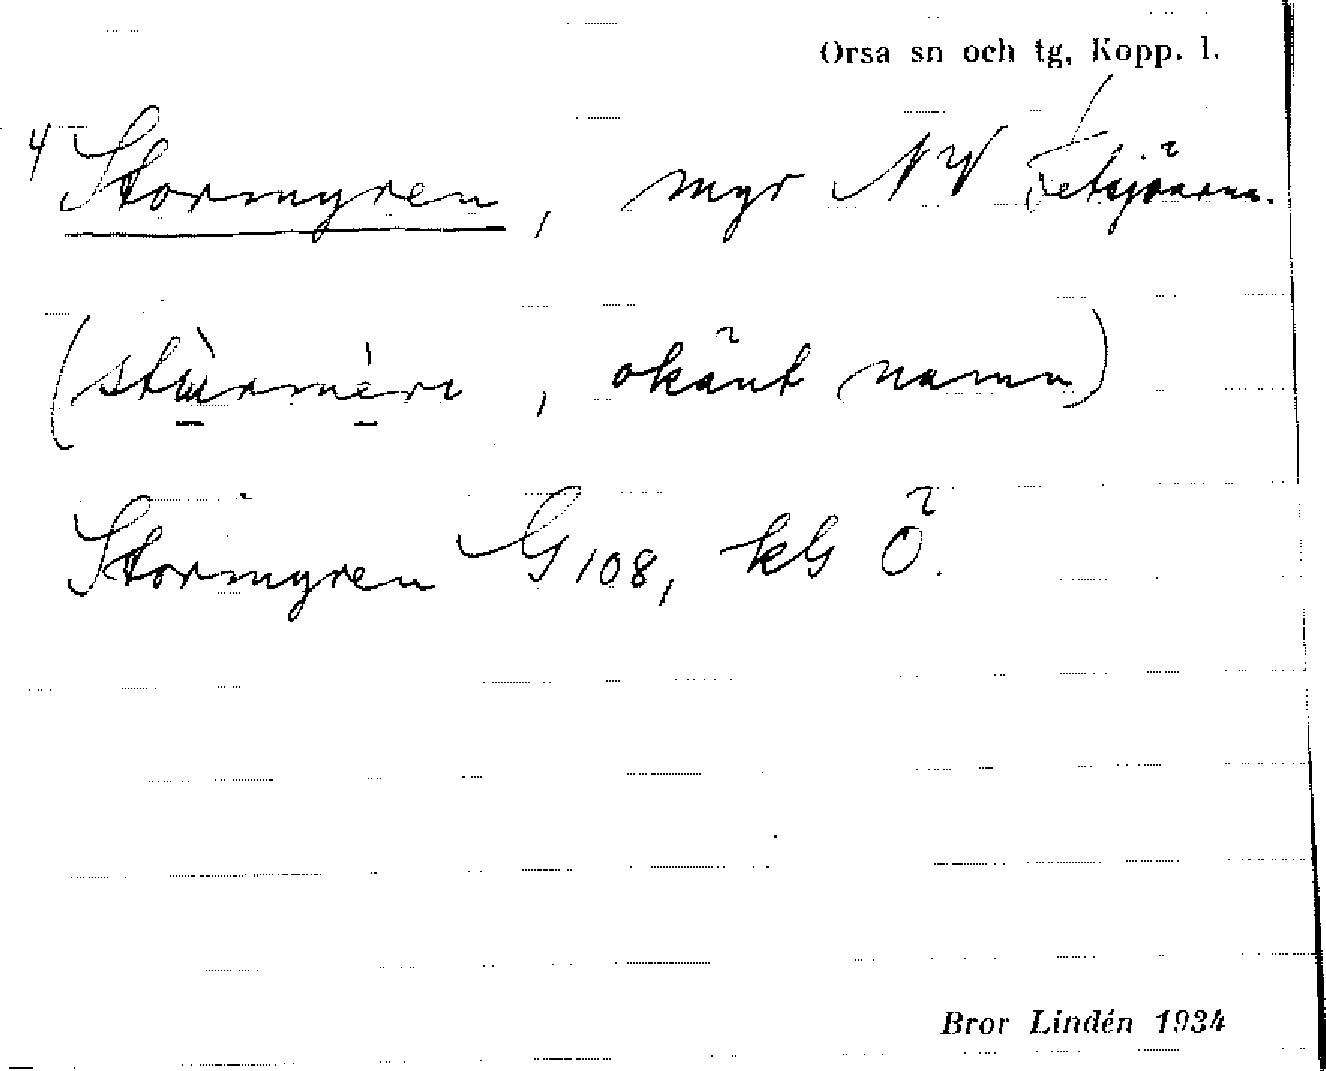 Orsa sn och tg, Kopp. l.
4 Stormyren, myr NV Fetsjöarna.
(stùrmèrι, okänt namn)
Stormyren G 108, kG Ö.
Bror Lindén 1934